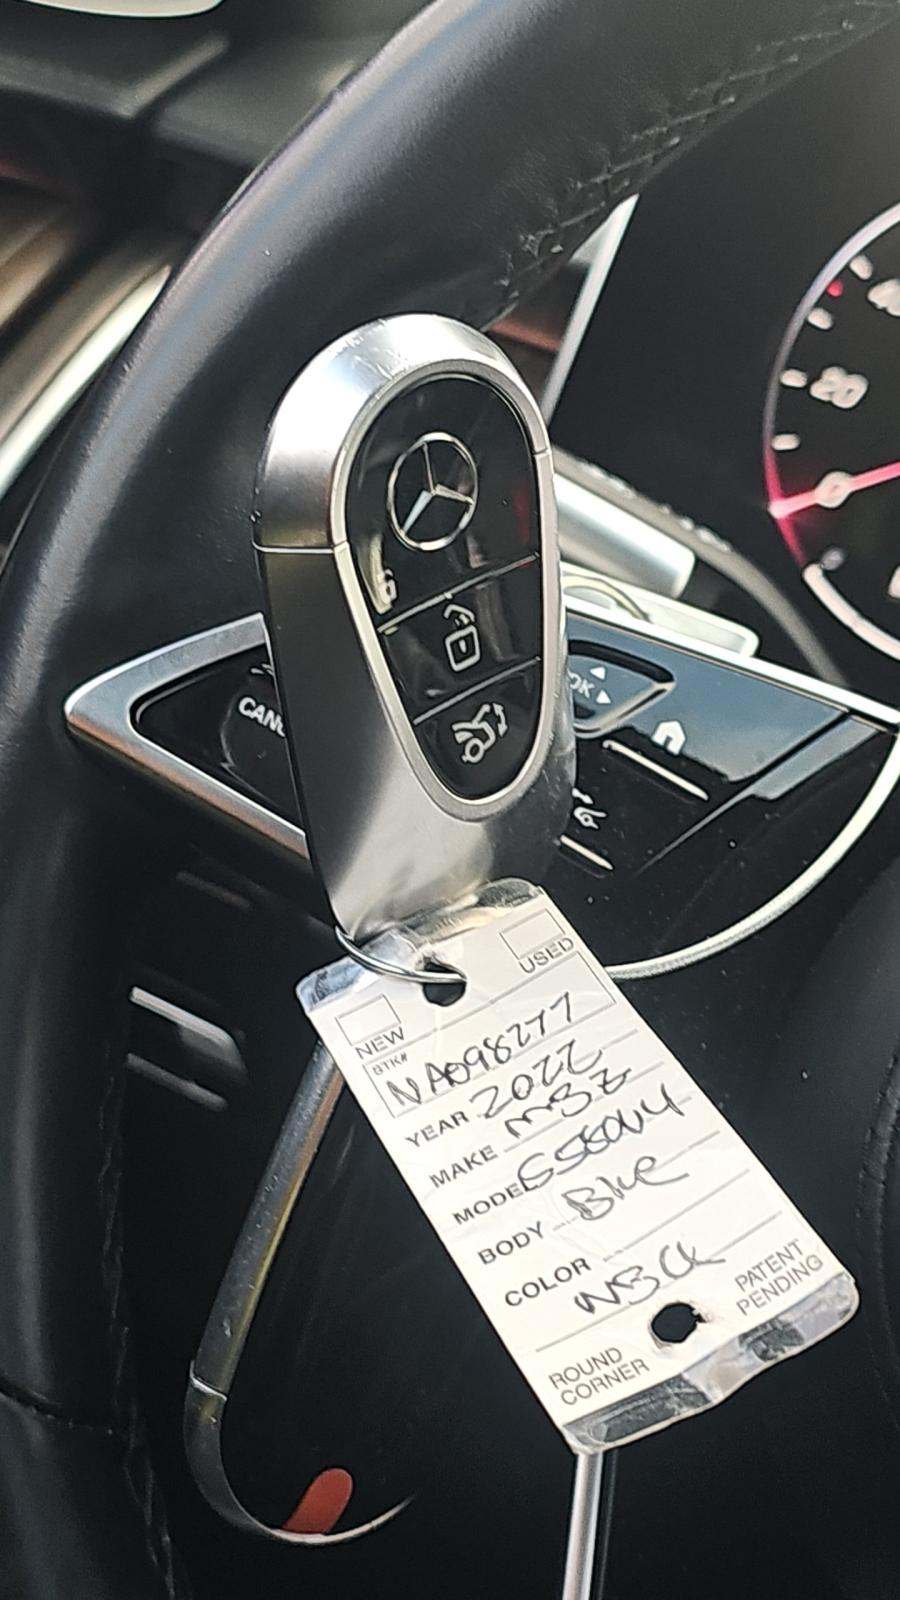 20
CANC
OK
NEW
USED
STK# NA098277
YEAR 2022
MAKE MBZ
MODEL S580V4
BODY Blue
COLOR
PATENT
PENDING
ROUND
CORNER